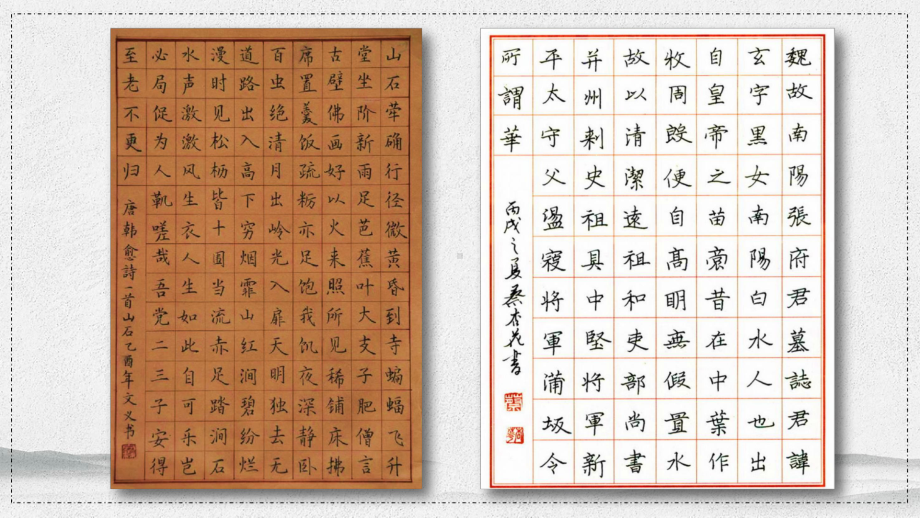 山石荦确行径微黄昏到寺蝙蝠飞升
堂坐阶新雨足芭蕉叶大支子肥僧言
古壁佛画好以火来照所见稀铺床拂
席置羹饭疏粝亦足饱我饥夜深静卧
百虫绝清月出岭光入扉天明独去无
道路出入高下穷烟霏山红涧碧纷烂
漫时见松枥皆十围当流赤足踏涧石
水声激激风生衣人生如此自可乐岂
必局促为人靰嗟哉吾党二三子安得
至老不更归
唐韩愈詩一首山石乙酉年文义书
魏故南陽張府君墓誌君諱
玄字黑女南陽白水人也出
自皇帝之苗裔昔在中葉作
牧周殷便自髙明無假置水
故以清潔遠祖和吏部尚書
并州刺史祖具中堅将軍新
平太守父盪寇将軍蒲坂令
所謂華
丙戌之夏蔡杏花書